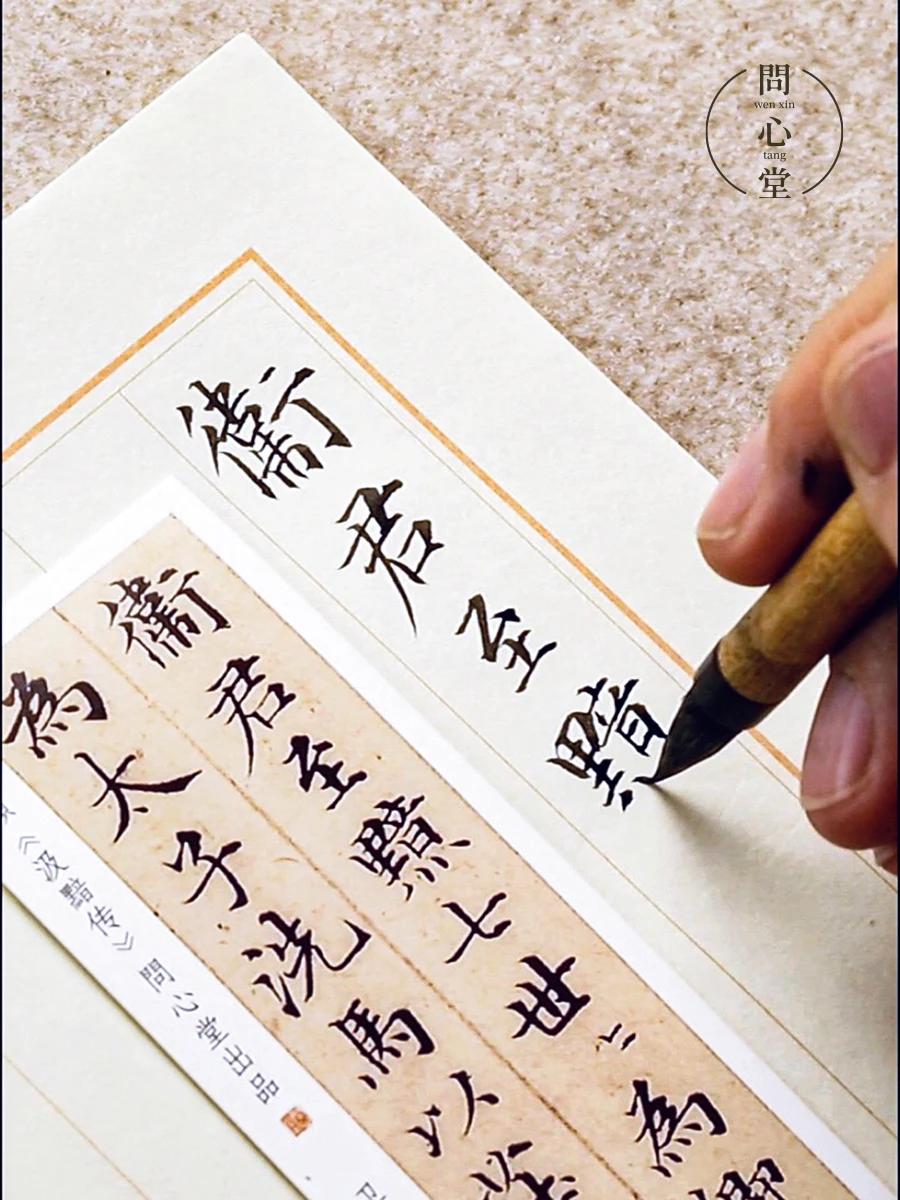 問
wen xin
心
tang
堂
衛君至黯
衛君至黯七世〻為
為太子洗馬以
《汲黯传》問心堂出品